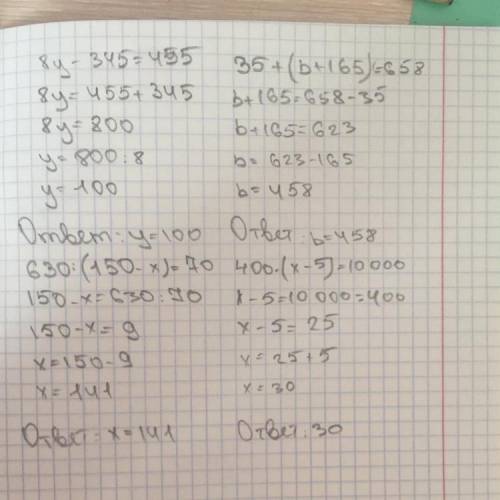 8y - 345 = 455
8y = 455 + 345
8y = 800
y = 800 : 8
y = 100
Ответ: y = 100
35 + (b + 165) = 658
b + 165 = 658 - 35
b + 165 = 623
b = 623 - 165
b = 458
Ответ: b = 458
630 : (150 - x) = 70
150 - x = 630 : 70
150 - x = 9
x = 150 - 9
x = 141
Ответ: x = 141
400 · (x - 5) = 10000
x - 5 = 10 000 = 400
x - 5 = 25
x = 25 + 5
x = 30
Ответ: 30